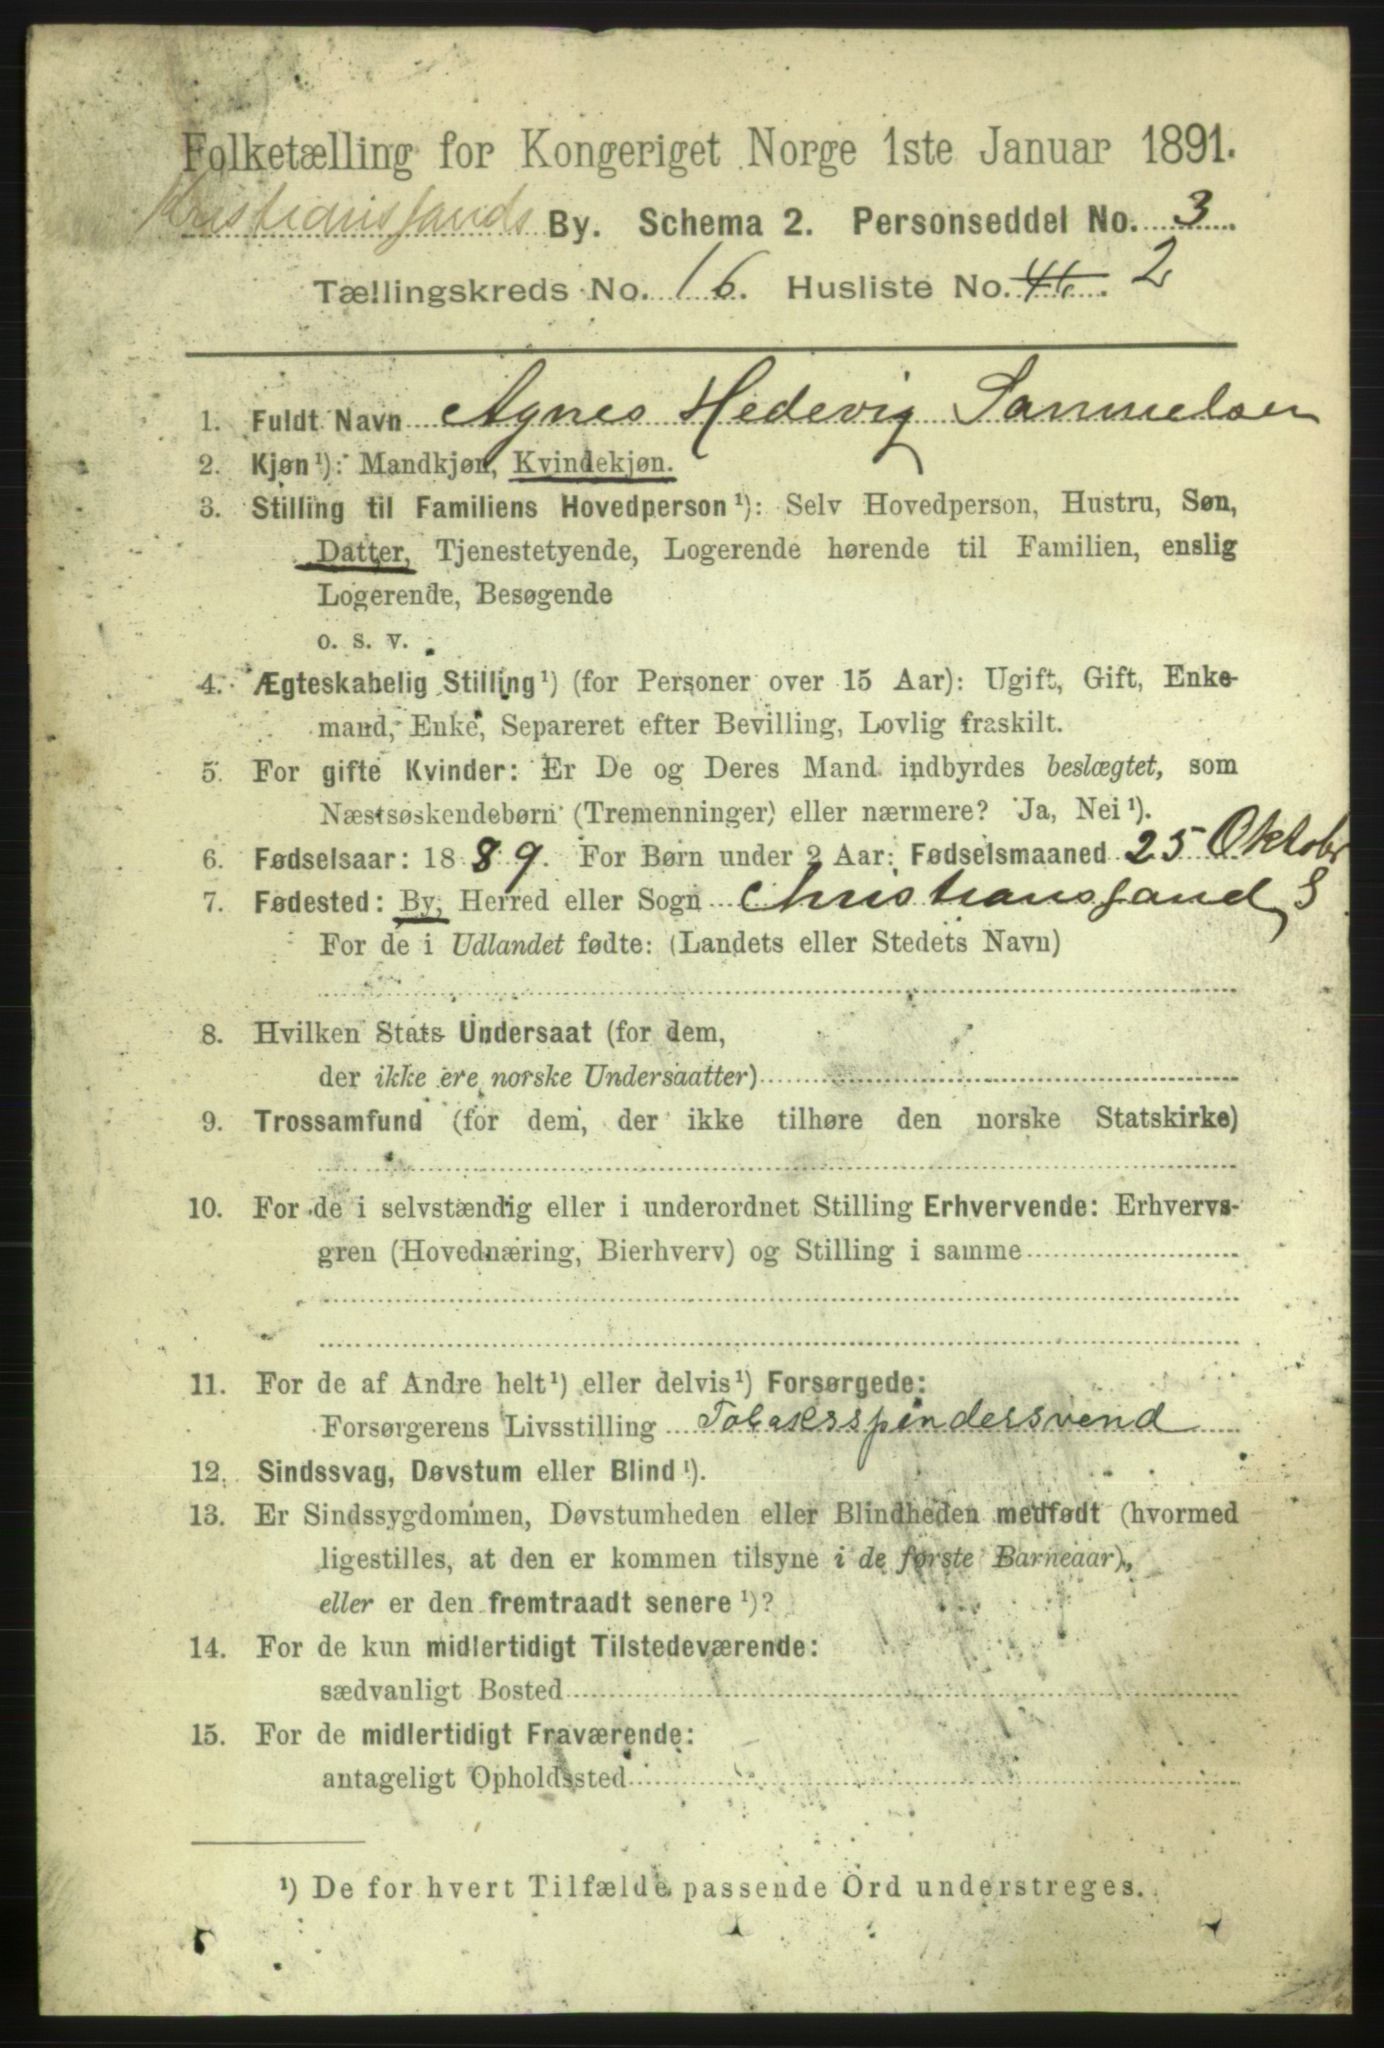 Folketælling for Kongeriget Norge 1ste Januar 1891.
Kristianssands By. Schema 2. Personseddel No. 3.
Tællingskreds No. 16. Husliste No. 46. 2
1. Fuldt Navn Agnes Hedevig Samuelsen
2. Kjøn¹): Mandkjøn, Kvindekjøn.
3. Stilling til Familiens Hovedperson¹): Selv Hovedperson, Hustru, Søn,
Datter, Tjenestetyende, Logerende hørende til Familien, enslig
Logerende, Besøgende
o. s. v.
4. Ægteskabelig Stilling¹) (for Personer over 15 Aar): Ugift, Gift, Enke-
mand, Enke, Separeret efter Bevilling, Lovlig fraskilt.
5. For gifte Kvinder: Er De og Deres Mand indbyrdes beslægtet, som
Næstsøskendebørn (Tremenninger) eller nærmere? Ja, Nei¹).
6. Fødselsaar: 1889. For Børn under 2 Aar: Fødselsmaaned 25 Oktobr
7. Fødested: By, Herred eller Sogn Christianssand S
For de i Udlandet fødte: (Landets eller Stedets Navn)
8. Hvilken Stats Undersaat (for dem,
der ikke ere norske Undersaatter)
9. Trossamfund (for dem, der ikke tilhøre den norske Statskirke)
10. For de i selvstændig eller i underordnet Stilling Erhvervende: Erhvervs-
gren (Hovednæring, Bierhverv) og Stilling i samme
11. For de af Andre helt¹) eller delvis¹) Forsørgede:
Forsørgerens Livsstilling Tobaksspindersvend
12. Sindssvag, Døvstum eller Blind¹).
13. Er Sindssygdommen, Døvstumheden eller Blindheden medfødt (hvormed
ligestilles, at den er kommen tilsyne i de første Barneaar),
eller er den fremtraadt senere¹)?
14. For de kun midlertidigt Tilstedeværende:
sædvanligt Bosted
15. For de midlertidigt Fraværende:
antageligt Opholdssted
¹) De for hvert Tilfælde passende Ord understreges.